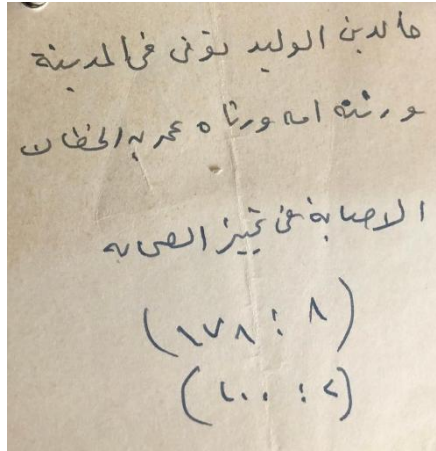 خالد بن الوليد توفى فى المدينة
ورثته امه ورثاه عمر بن الخطاب
الاصابة فى تمييز الصحابه
(٨ : ١٧٨)
(٢ : ١٠٠)